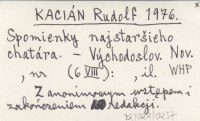 KACIÁN Rudolf 1976.
Spomienky najstaršieho
chatára. - Východoslov. Nov.
, nr (6 VIII): , il. WHP
Z anonimowym wstępem i
zakończeniem redakcji.